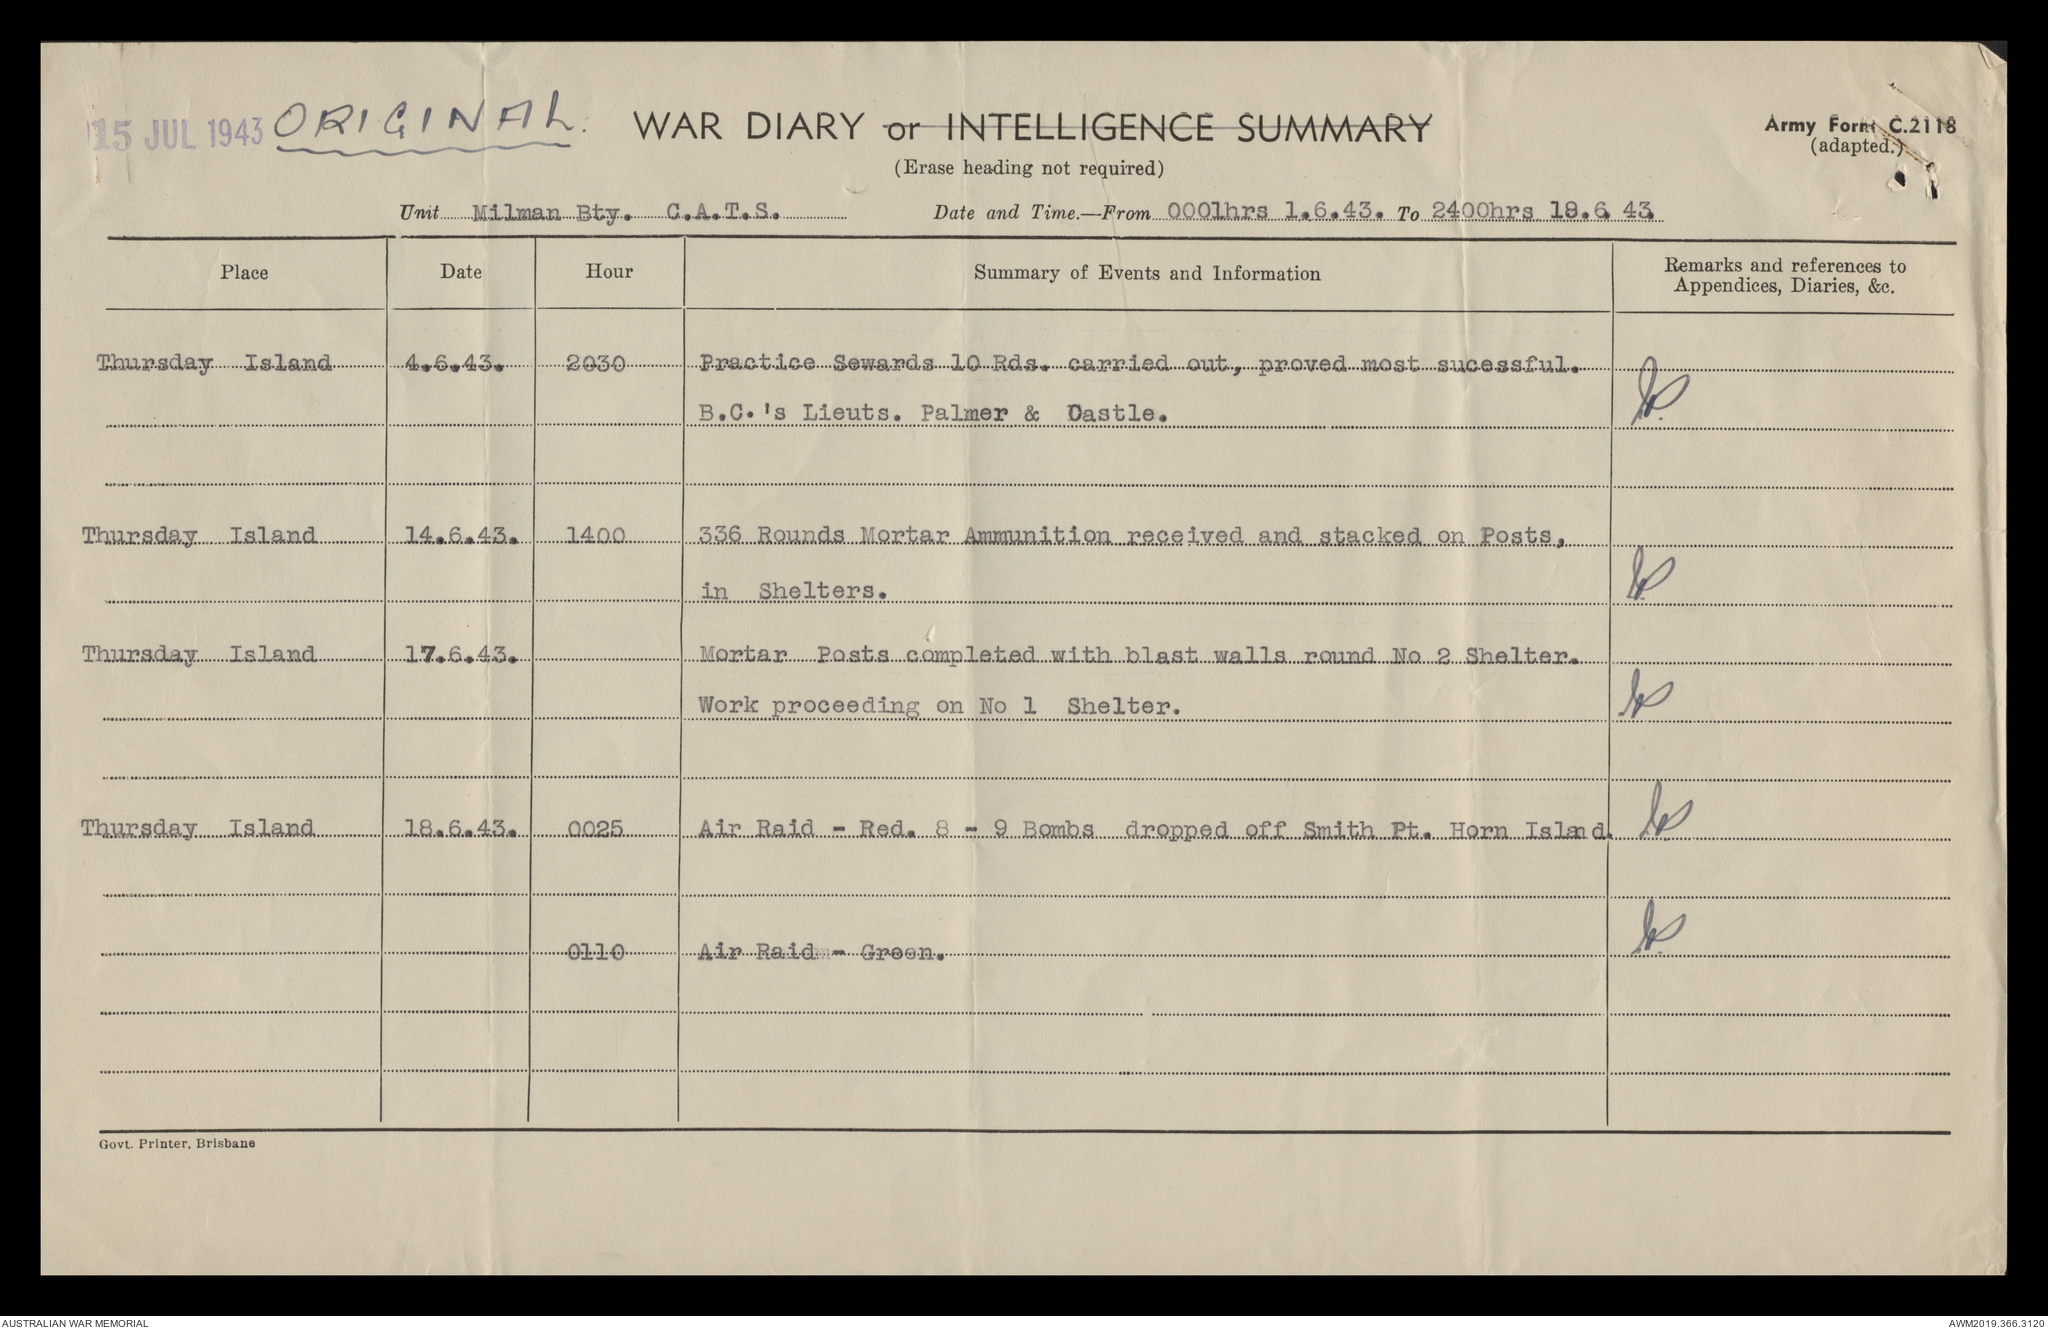 15 JUL 1943 ORIGINAL. WAR DIARY or INTELLIGENCE SUMMARY Army Form C.2118
(adapted.)
(Erase heading not required)
Unit Milman Bty. C.A.T.S. Date and Time.—From 0001hrs 1.6.43. To 2400hrs 18.6 43.
Place Date Hour Summary of Events and Information Remarks and references to
Appendices, Diaries, &c.
Thursday Island 4.6.43. 2030 Practice Sewards 10 Rds. carried out, proved most sucessful.
B.C.'s Lieuts. Palmer & Castle.
Thursday Island 14.6.43. 1400 336 Rounds Mortar Ammunition received and stacked on Posts,
in Shelters.
Thursday Island 17.6.43. Mortar Posts completed with blast walls round No 2 Shelter.
Work proceeding on No 1 Shelter.
Thursday Island 18.6.43. 0025 Air Raid - Red. 8 - 9 Bombs dropped off Smith Pt. Horn Island.
0110 Air Raid - Green.
Govt. Printer, Brisbane
AUSTRALIAN WAR MEMORIAL AWM2019.366.3120